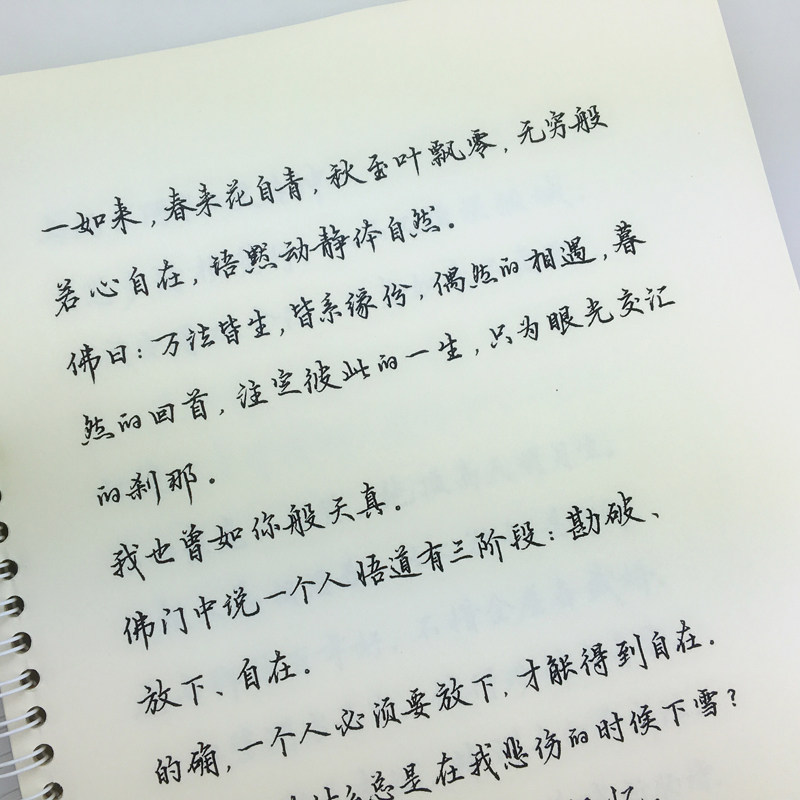 一如来，春来花自青，秋至叶飘零，无穷般
若心自在，语默动静体自然。
佛曰：万法皆生，皆系缘份，偶然的相遇，暮
然的回首，注定彼此的一生，只为眼光交汇
的刹那。
我也曾如你般天真。
佛门中说一个人悟道有三阶段：勘破、
放下、自在。
的确，一个人必须要放下，才能得到自在。
总是在我悲伤的时候下雪？
忆